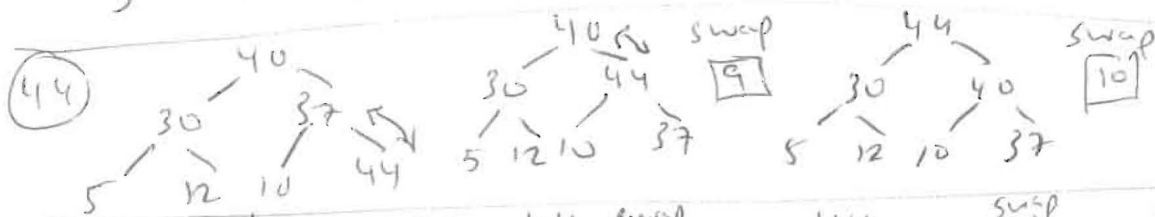 44
40
30 37
5 12 10 44
40 swap
30 44 9
5 12 10 37
44 swap
30 40 10
5 12 10 37
swap
swap